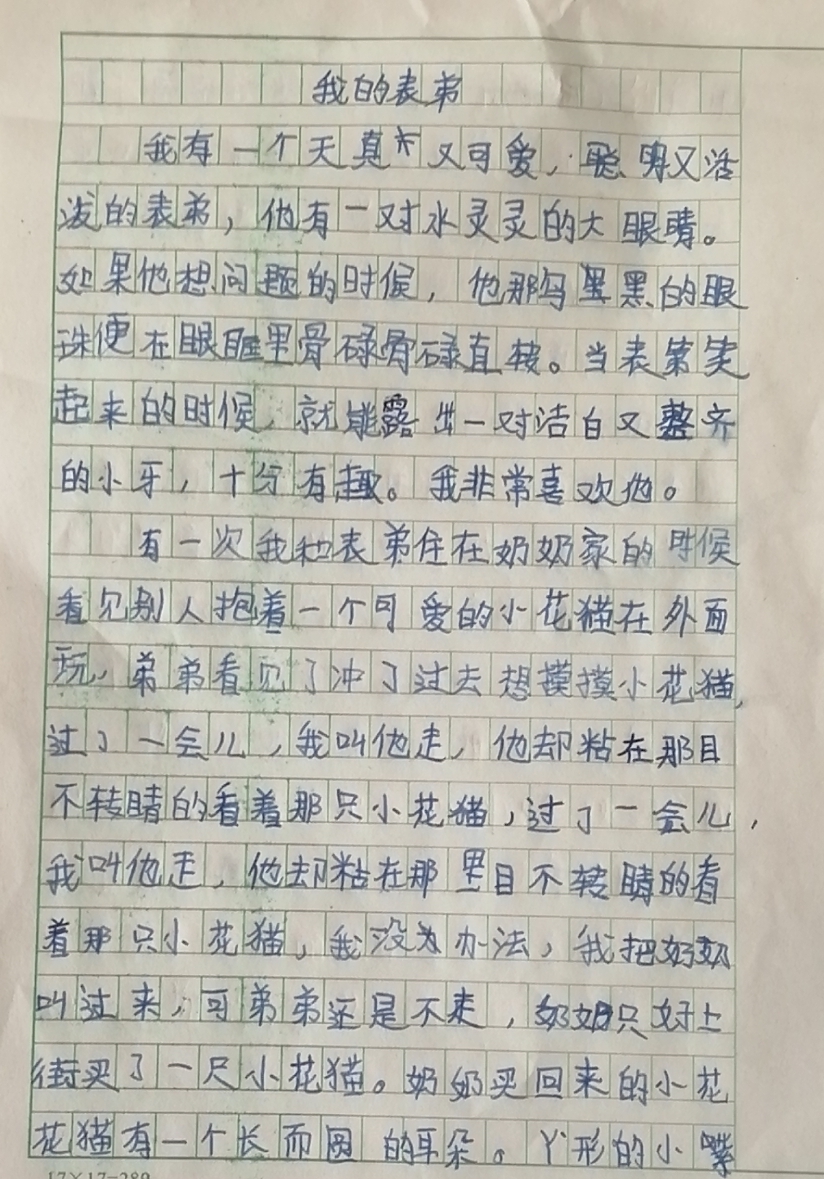 我的表弟
我有一个天真又可爱，聪明又活
泼的表弟，他有一对水灵灵的大眼睛。
如果他想问题的时候，他那乌黑黑的眼
珠便在眼眶里骨碌骨碌直转。当表弟笑
起来的时候，就能露出一对洁白又整齐
的小牙，十分有趣。我非常喜欢他。
有一次我和表弟住在奶奶家的时候
看见别人抱着一个可爱的小花猫在外面
玩，弟弟看见了冲了过去想摸摸小花猫，
过了一会儿，我叫他走，他却粘在那目
不转睛的看着那只小花猫，过了一会儿，
我叫他走，他却粘在那里目不转睛的看
着那只小花猫，我没为办法，我把奶奶
叫过来，可弟弟还是不走，奶奶只好上
街买了一只小花猫。奶奶买回来的小花
花猫有一个长而圆的耳朵。丫形的小嘴